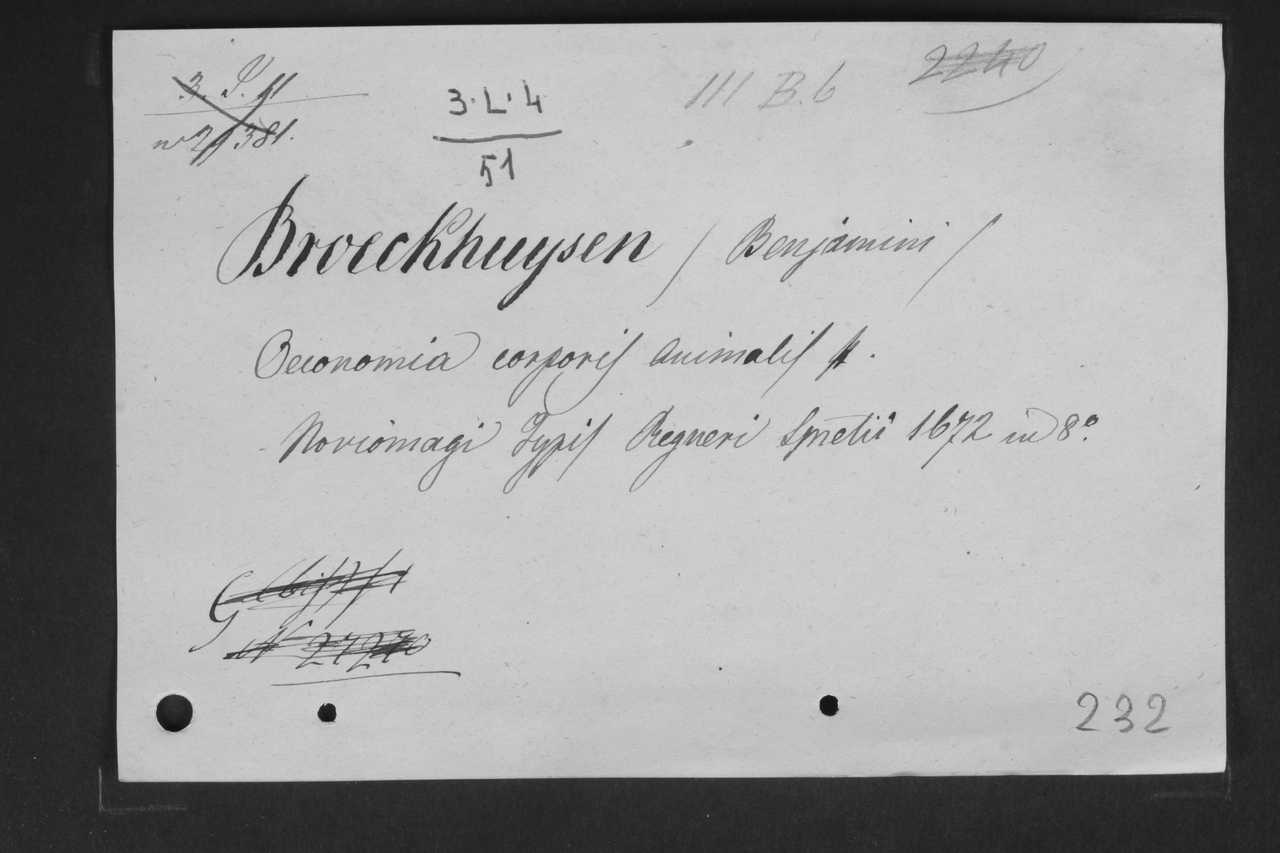 3. L. 4
51
III B. 6
2240
Broeckhuysen / Benjamini /
Oeconomia corporis animalis
Noviomagi Typis Regneri Smetii 1672 in 8º
232